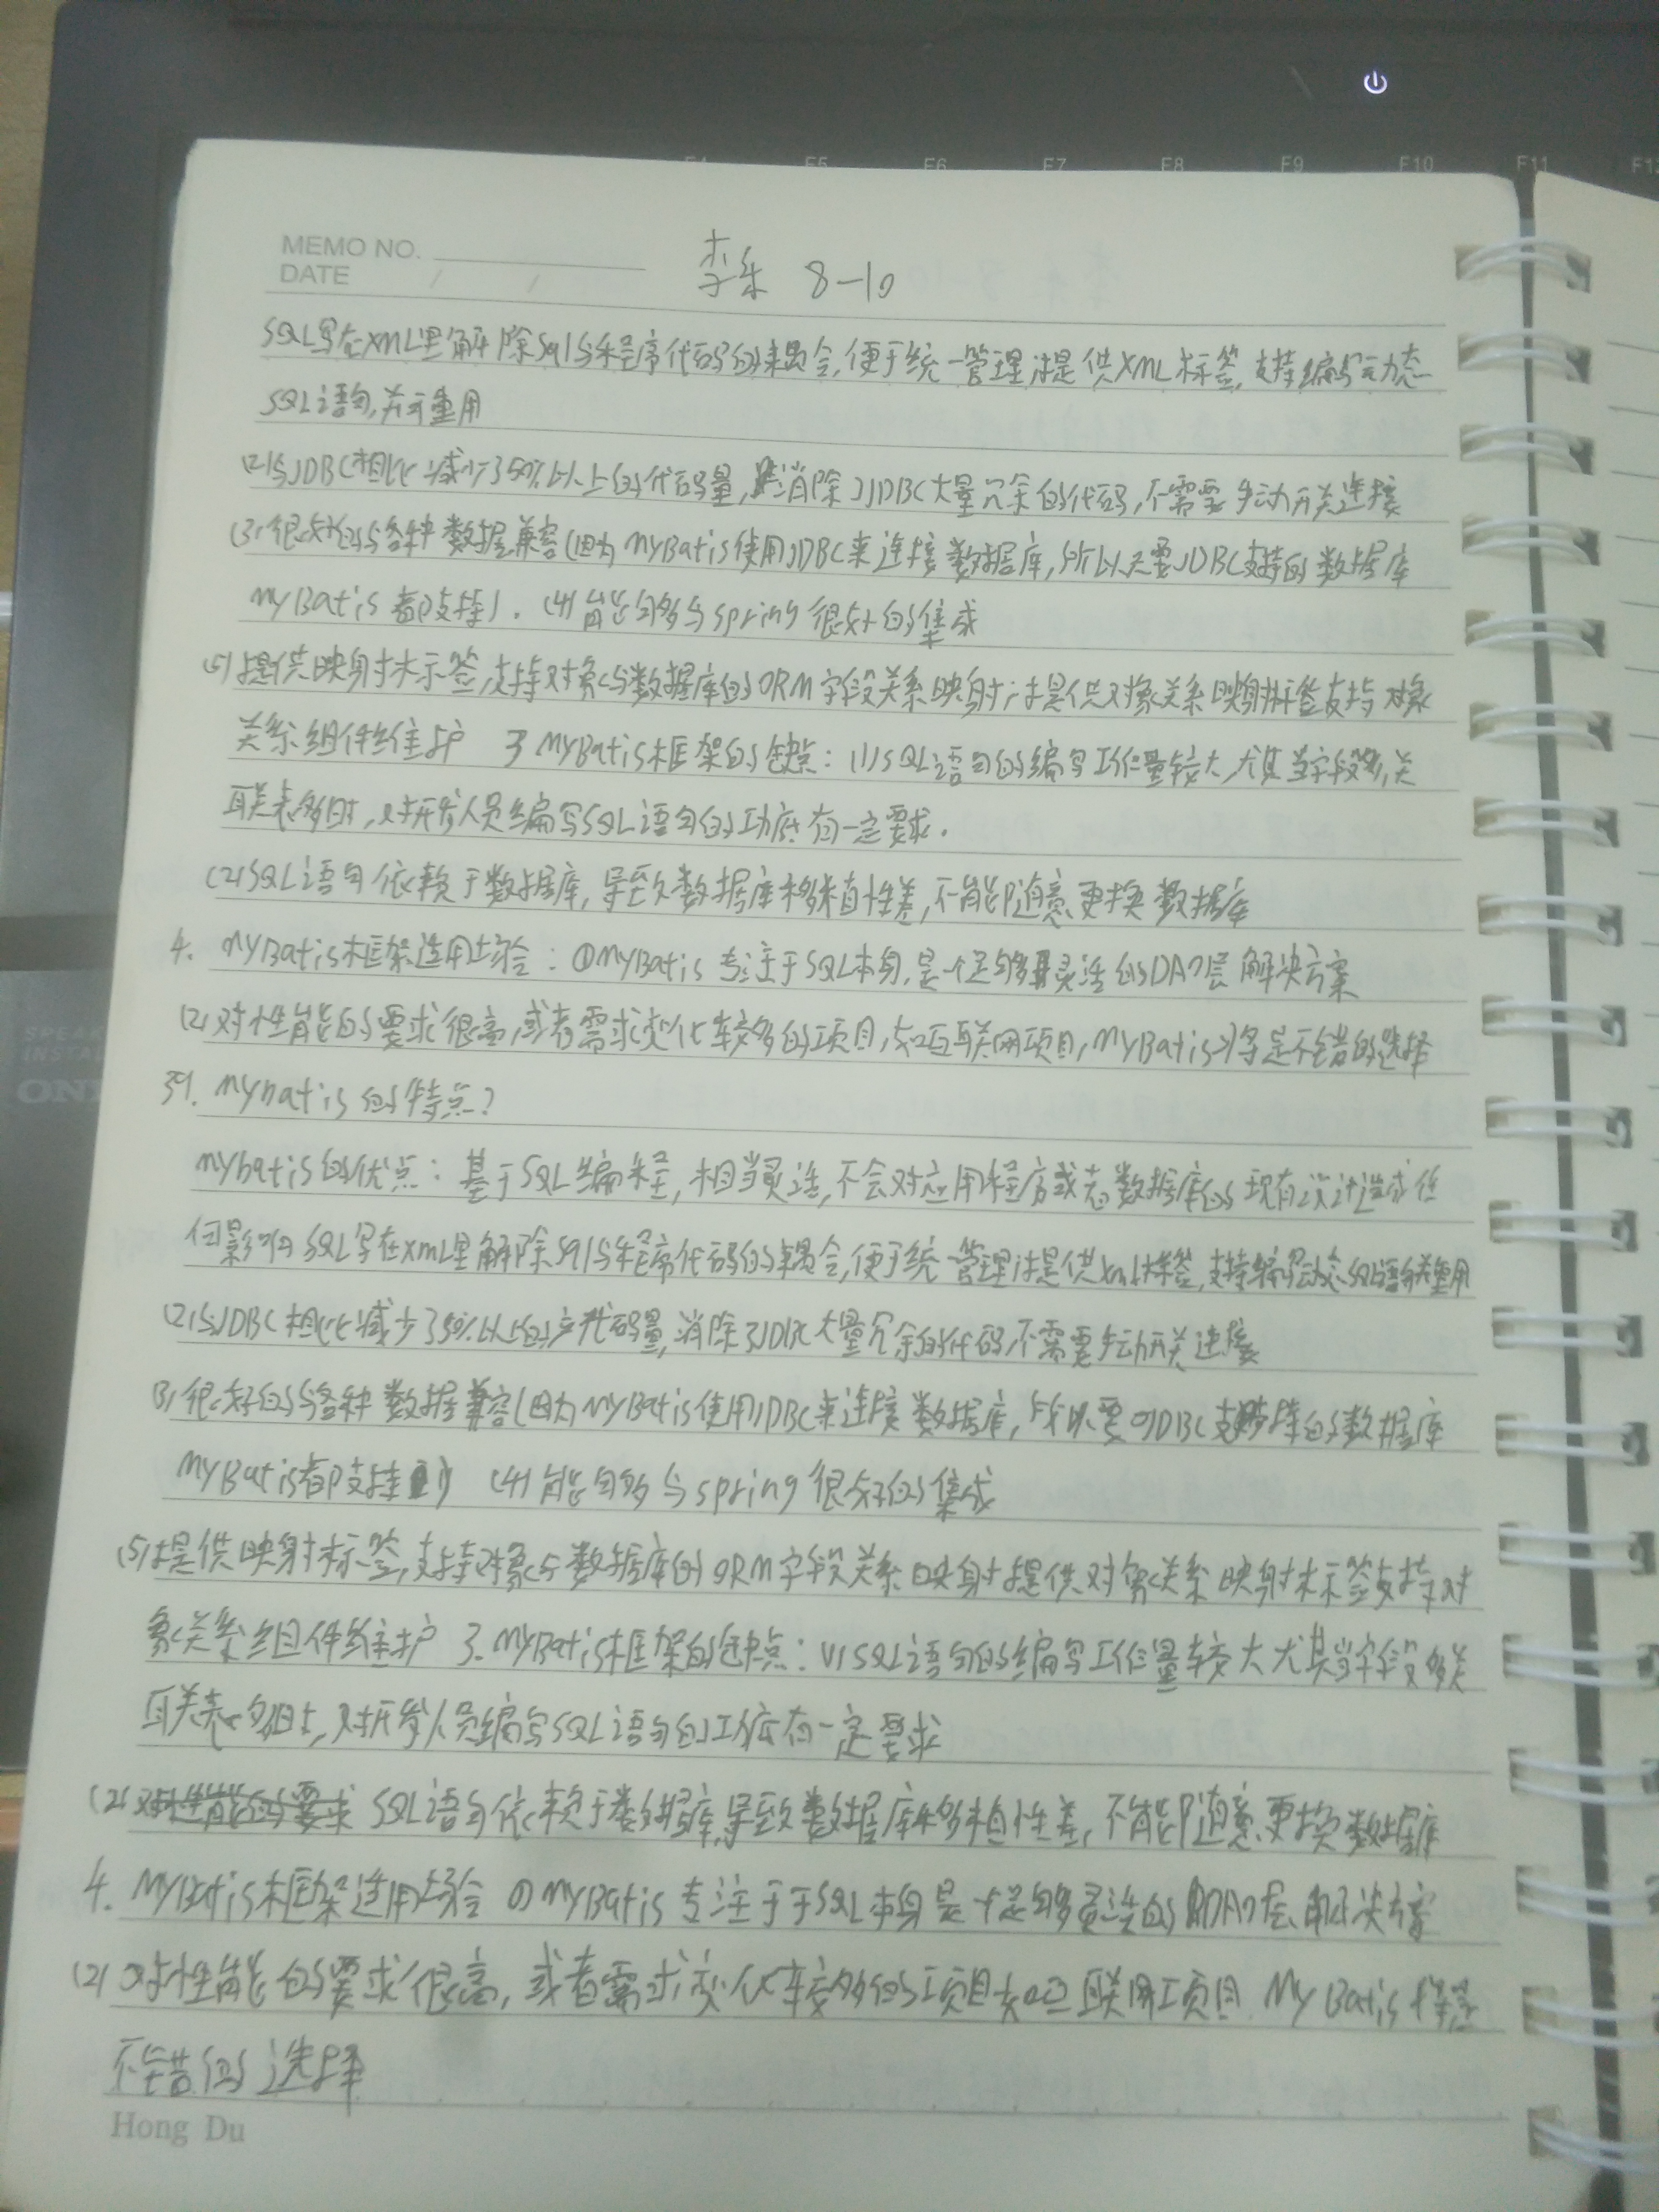 F4 F5 F6 F7 F8 F9 F10 F11 F12
MEMO NO.
DATE / /
李乐 8-10
SQL写在XML里解除sql与程序代码的耦合,便于统一管理;提供XML标签,支持编写动态
SQL语句,并可重用
(2)与JDBC相比减少了50%以上的代码量,消除了JDBC大量冗余的代码,不需要手动开关连接
(3)很好的与各种数据兼容(因为MyBatis使用JDBC来连接数据库,所以只要JDBC支持的数据库
MyBatis都支持).(4)能够与spring很好的集成
(5)提供映射标签,支持对象与数据库的ORM字段关系映射;提供对象关系映射标签支持对象
关系组件维护 3 MyBatis框架的缺点:(1)SQL语句的编写工作量较大,尤其当字段多,关
联表多时,对开发人员编写SQL语句的功底有一定要求.
(2)SQL语句依赖于数据库,导致数据库移植性差,不能随意更换数据库
4. MyBatis框架适用场合:①MyBatis专注于SQL本身,是一个足够灵活的DAO层解决方案
(2)对性能的要求很高,或者需求变化较多的项目,如互联网项目,MyBatis将是不错的选择
39. mybatis的特点?
mybatis的优点:基于SQL编程,相当灵活,不会对应用程序或者数据库的现有设计造成任
何影响 SQL写在XML里解除sql与程序代码的耦合,便于统一管理;提供xml标签,支持编写动态SQL语句并重用
(2)与JDBC相比减少了50%以上的代码量,消除了JDBC大量冗余的代码不需要手动开关连接
(3)很好的与各种数据兼容(因为MyBatis使用JDBC来连接数据库,所以要JDBC支持的数据库
MyBatis都支持) (4)能够与spring很好的集成
(5)提供映射标签,支持对象与数据库的ORM字段关系映射提供对象关系映射标签支持对
象关系组件维护 3. MyBatis框架的缺点:(1)SQL语句的编写工作量较大尤其当字段多关
联表多时,对开发人员编写SQL语句的功底有一定要求
(2)对性能的要求 SQL语句依赖于数据库,导致数据库移植性差,不能随意更换数据库
4. MyBatis框架适用场合 ①MyBatis专注于于SQL本身是一个足够灵活的DAO层解决方案
(2)对性能的要求很高,或者需求变化较多的项目如互联网项目.MyBatis将是
不错的选择
Hong Du